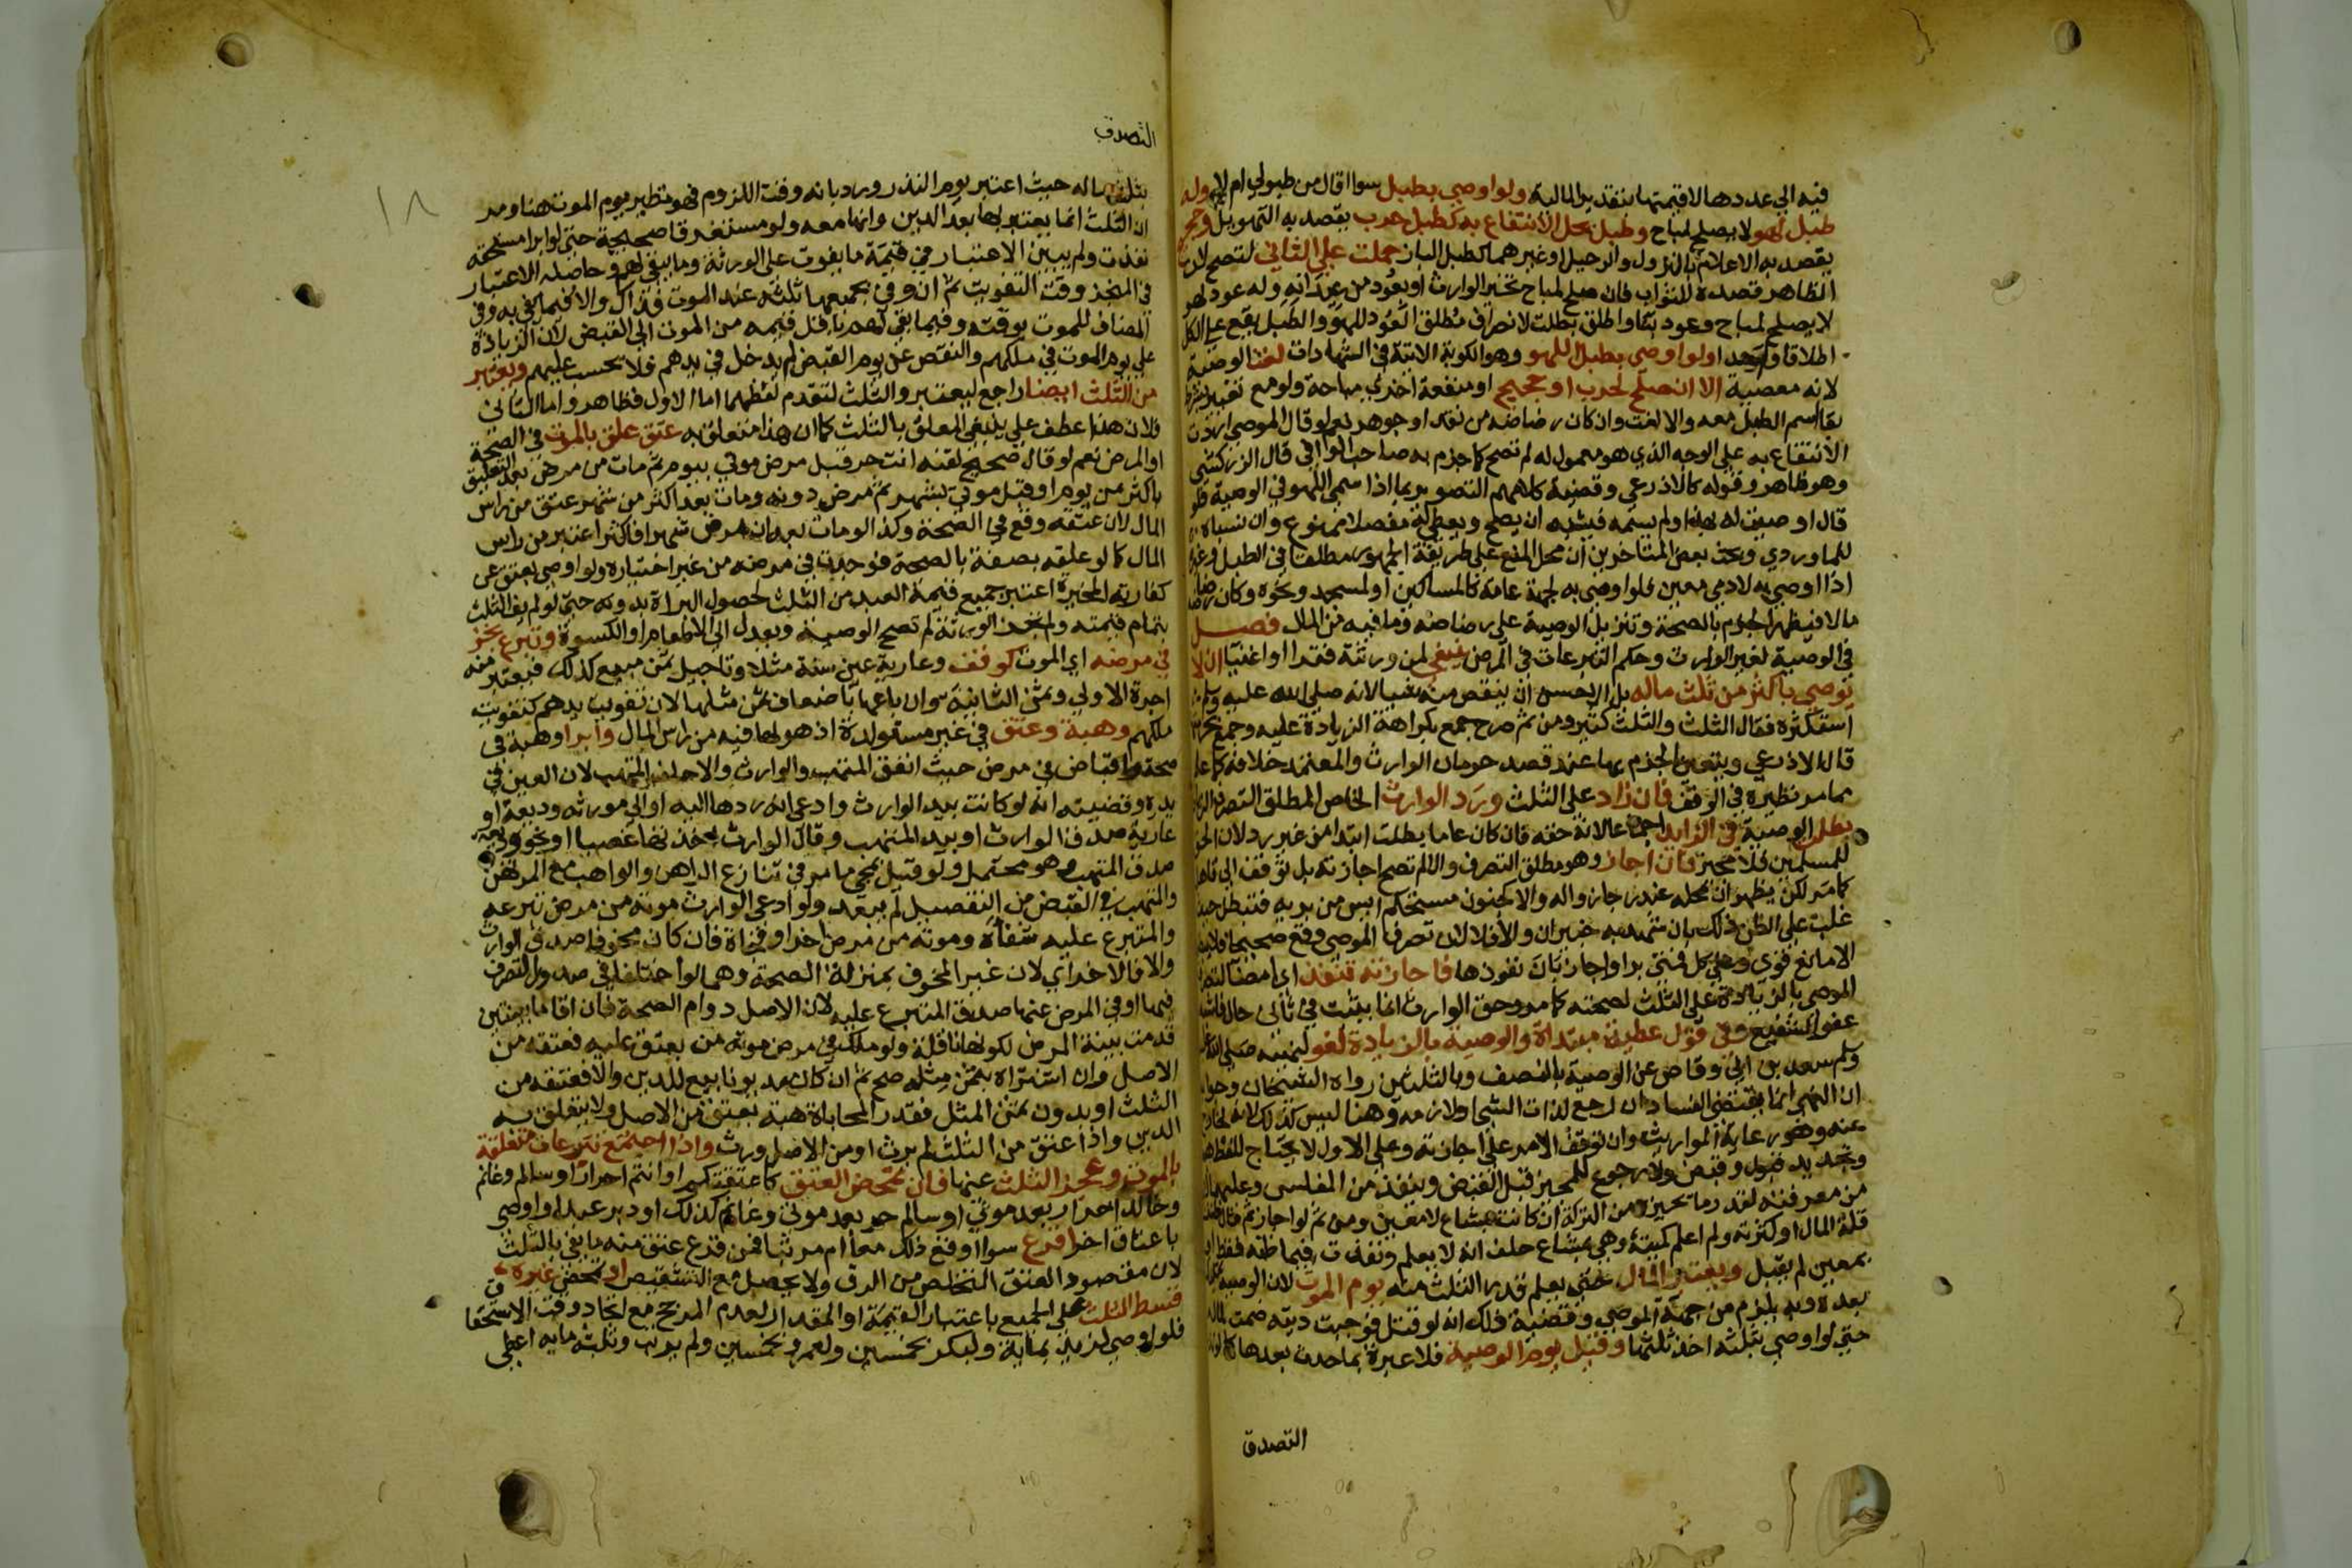 فيه الي عددها لا قيمتها بتقدير المالية ولو اوصي بطبل سوا اقال من طبولي ام لا وله
طبل لهو لا يصلح لمباح وطبل يحل الانتفاع به كطبل حرب يقصد به التهويل وحجيج
يقصد به الاعلام بالنزول والرحيل او غيرهما كطبل الباز حملت علي الثاني لتصح لان
الظاهر قصده للثواب فان صلح لمباح تخير الوارث او بعود من عيدانه وله عود لهو
لا يصلح لمباح وعود بنا واطلق بطلت لانصراف مطلق العود للهو والطبل يقع علي الكل
اطلاقا واحد اولو اوصي بطبل اللهو وهو الكوبة الاتية في الشهادات لغت الوصية
لانه معصية الا ان صلح لحرب او حجيج او منفعة اخري مباحة ولو مع تغيير
بقا اسم الطبل معه والا لغت وان كان رضاضه من نقد او جوهر نعم لو قال الموصي اردت
الانتفاع به علي الوجه الذي هو معمول له لم تصح كما جزم به صاحب الوافي قال الزركشي
وهو ظاهر وقوله كالاذرعي وقضية كلامهم التصوير بما اذا سمي اللهو في الوصية فلو
قال اوصيت له بهذا ولم يسمه فيشبه ان يصح ويعطي له مفصلا ممنوع وان نسباه
للماوردي وبحث بعض المتاخرين ان محل المنع علي طريقة الجمهور مطلقا في الطبل وغيره
اذا اوصي به لادمي معين فلو اوصي به لجهة عامة كالمساكين او لمسجد ونحوه وكان رضاضه
مالا فيظهر الجزم بالصحة وتنزيل الوصية علي رضاضه وما فيه من المال فصل
في الوصية لغير الوارث وحكم التبرعات في المرض ينبغي لمن ورثته فقرا او اغنيا ان لا
يوصي باكثر من ثلث ماله بل الاحسن ان ينقص منه شيا لانه صلي الله عليه وسلم
استكثره فقال الثلث والثلث كثير ومن ثم صرح جمع بكراهة الزيادة عليه وجمع بحرمتها
قال الاذرعي ويتعين الجزم بها عند قصد حرمان الوارث والمعتمد خلافه كما علم
مما مر نظيره في الوقف فان زاد علي الثلث ورد الوارث الخاص المطلق التصرف الزايد
بطلت الوصية في الزايد اجماعا لانه حقه فان كان عاما بطلت ابتدا من غير رد لان الحق
للمسلمين فلا مجيز فان اجاز وهو مطلق التصرف والا لم تصح اجازته بل توقف الي تاهله
كما مر لكن يظهر ان محله عند رجا زواله والا كجنون مستحكم ايس من بريه فتبطل حيث
غلب علي الظن ذلك بان شهد به خبيران والا فلا لان تصرف الموصي وقع صحيحا فلا يبطله
الا مانع قوي وعلي كل فمتي برا واجاز بان نفوذها فاجازته تنفيذ اي امضا لتصرف
الموصي بالزيادة علي الثلث لصحته كما مر وحق الوارث انما يثبت في ثاني حال فاشبه
عفو الشفيع وفي قول عطية مبتداة والوصية بالزيادة لغو لنهيه صلي الله عليه
وسلم سعد بن ابي وقاص عن الوصية بالنصف وبالثلثين رواه الشيخان وجوابه
ان النهي انما يقتضي الفساد ان رجع لذات الشي او لازمه وهنا ليس كذلك لانه لخارج
عنه وهو رعاية الوارث وان توقف الامر علي اجازته وعلي الاول لا يحتاج للفظ هبة
وتجديد قبول وقبض ولا رجوع للمجيز قبل القبض وينفذ من المفلس وعليهما لا بد
من معرفته لقدر ما يجيزه من التركة ان كانت بمشاع لا معين ومن ثم لو اجاز ثم قال ظننت
قلة المال او كثرته ولم اعلم كميته وهي بمشاع حلف انه لا يعلم ونفذت فيما ظنه فقط او
بمعين لم يقبل ويعتبر المال حتي يعلم قدر الثلث منه يوم الموت لان الوصية تمليك
بعده وبه يلزم من جهة الموصي وقضية ذلك انه لو قتل فوجبت ديته ضمت لماله
حتي لو اوصي بثلثه اخذ ثلثها وقيل يوم الوصية فلا عبرة بما حدث بعدها كما لو نذر
التصدق
التصدق
١٨
بثلث ماله حيث اعتبر يوم النذر ورد بانه وقت اللزوم فهو نظير يوم الموت هنا ومر
ان الثلث انما يعتبر لها بعد الدين وانها معه ولو مستغرقا صحيحة حتي لو ابرا مستحقه
نفذت ولم يبين الاعتبار في قيمة ما يفوت علي الورثة وما يبقي لهم وحاصله الاعتبار
في المنجز وقت التفويت ثم ان وفي بجميعها ثلثه عند الموت فذاك والا فيما يفي به وفي
المضاف للموت بوقته وفيما بقي لهم باقل قيمه من الموت الي القبض لان الزيادة
علي يوم الموت في ملكهم والنقص عن يوم القبض لم يدخل في يدهم فلا يحسب عليهم ويعتبر
من الثلث ايضا راجع ليعتبر والثلث لتقدم لفظهما اما الاول فظاهر واما الثاني
فلان هذا عطف علي ينبغي المعلق بالثلث كما ان هذا متعلق به عتق علق بالموت في الصحة
او المرض نعم لو قال صحيح لقنه انت حر قبل مرض موتي بيوم ثم مات من مرض بعد التعليق
باكثر من يوم او قبل موتي بشهر ثم مرض دونه ومات بعد اكثر من شهر عتق من راس
المال لان عتقه وقع في الصحة وكذا لو مات بعد ان مرض شهرا فاكثر اعتبر من راس
المال كما لو علقه بصفة بالصحة فوجدت في مرضه من غير اختياره ولو اوصي بعتق عن
كفارته المخيرة اعتبر جميع قيمة العبد من الثلث لحصول البراة بدونه حتي لو لم يف الثلث
بتمام قيمته ولم يجز الورثة لم تصح الوصية ويعدل الي الاطعام او الكسوة وتبرع نجز
في مرضه اي الموت كوقف وعارية عين سنة مثلا وتاجيل ثمن مبيع كذلك فيعتبر منه
اجرة الاولي وثمن الثانية وان باعها باضعاف ثمن مثلها لان تفويت يدهم كتفويت
ملكهم وهبة وعتق في غير مستولدة اذ هو لها فيه من راس المال وابرا وهبة في
صحة واقباض في مرض حيث اتفق المتهب والوارث والا حلف المتهب لان العين في
يده وقضيته انه لو كانت بيد الوارث وادعي انه ردها اليه او الي مورثه وديعة او
عارية صدق الوارث او بيد المتهب وقال الوارث اخذتها غصبا او نحو وديعة
صدق المتهب وهو محتمل ولو قيل بمجي ما مر في تنازع الراهن والواهب مع المرتهن
والمتهب في القبض من التفصيل لم يبعد ولو ادعي الوارث موته من مرض تبرعه
والمتبرع عليه شفاه وموته من مرض اخر او فجاة فان كان مخوفا صدق الوارث
والا فالاخر اي لان غير المخوف بمنزلة الصحة وهما لو اختلفا في صدور التصرف
فيها او في المرض عنها صدق المتبرع عليه لان الاصل دوام الصحة فان اقاما بينتين
قدمت بينة المرض لكونها ناقلة ولو ملك في مرض موته من يعتق عليه فعتقه من
الاصل وان اشتراه بثمن مثله صح ثم ان كان مديونا بيع للدين والا فعتقه من
الثلث او بدون ثمن المثل فقدر المحاباة هبة يعتق من الاصل ولا يتعلق به
الدين واذا عتق من الثلث لم يرث او من الاصل ورث واذا اجتمع تبرعات متعلقة
بالموت وعجز الثلث عنها فان تمحض العتق كاعتقتكم او انتم احرار او سالم وغانم
وخالد احرار بعد موتي او سالم حر بعد موتي وغانم كذلك او دبر عبدا واوصي
باعتاق اخر اقرع سوا اوقع ذلك معا ام مرتبا فمن قرع عتق منه ما يفي بالثلث
لان مقصود العتق التخلص من الرق ولا يحصل مع التشقيص او تمحض غيره
قسط الثلث علي الجميع باعتبار القيمة او المقدار لعدم المرجح مع اتحاد وقت الاستحقاق
فلو اوصي لزيد بماية ولبكر بخمسين ولعمرو بخمسين ولم يرتب وثلثه مايه اعطي